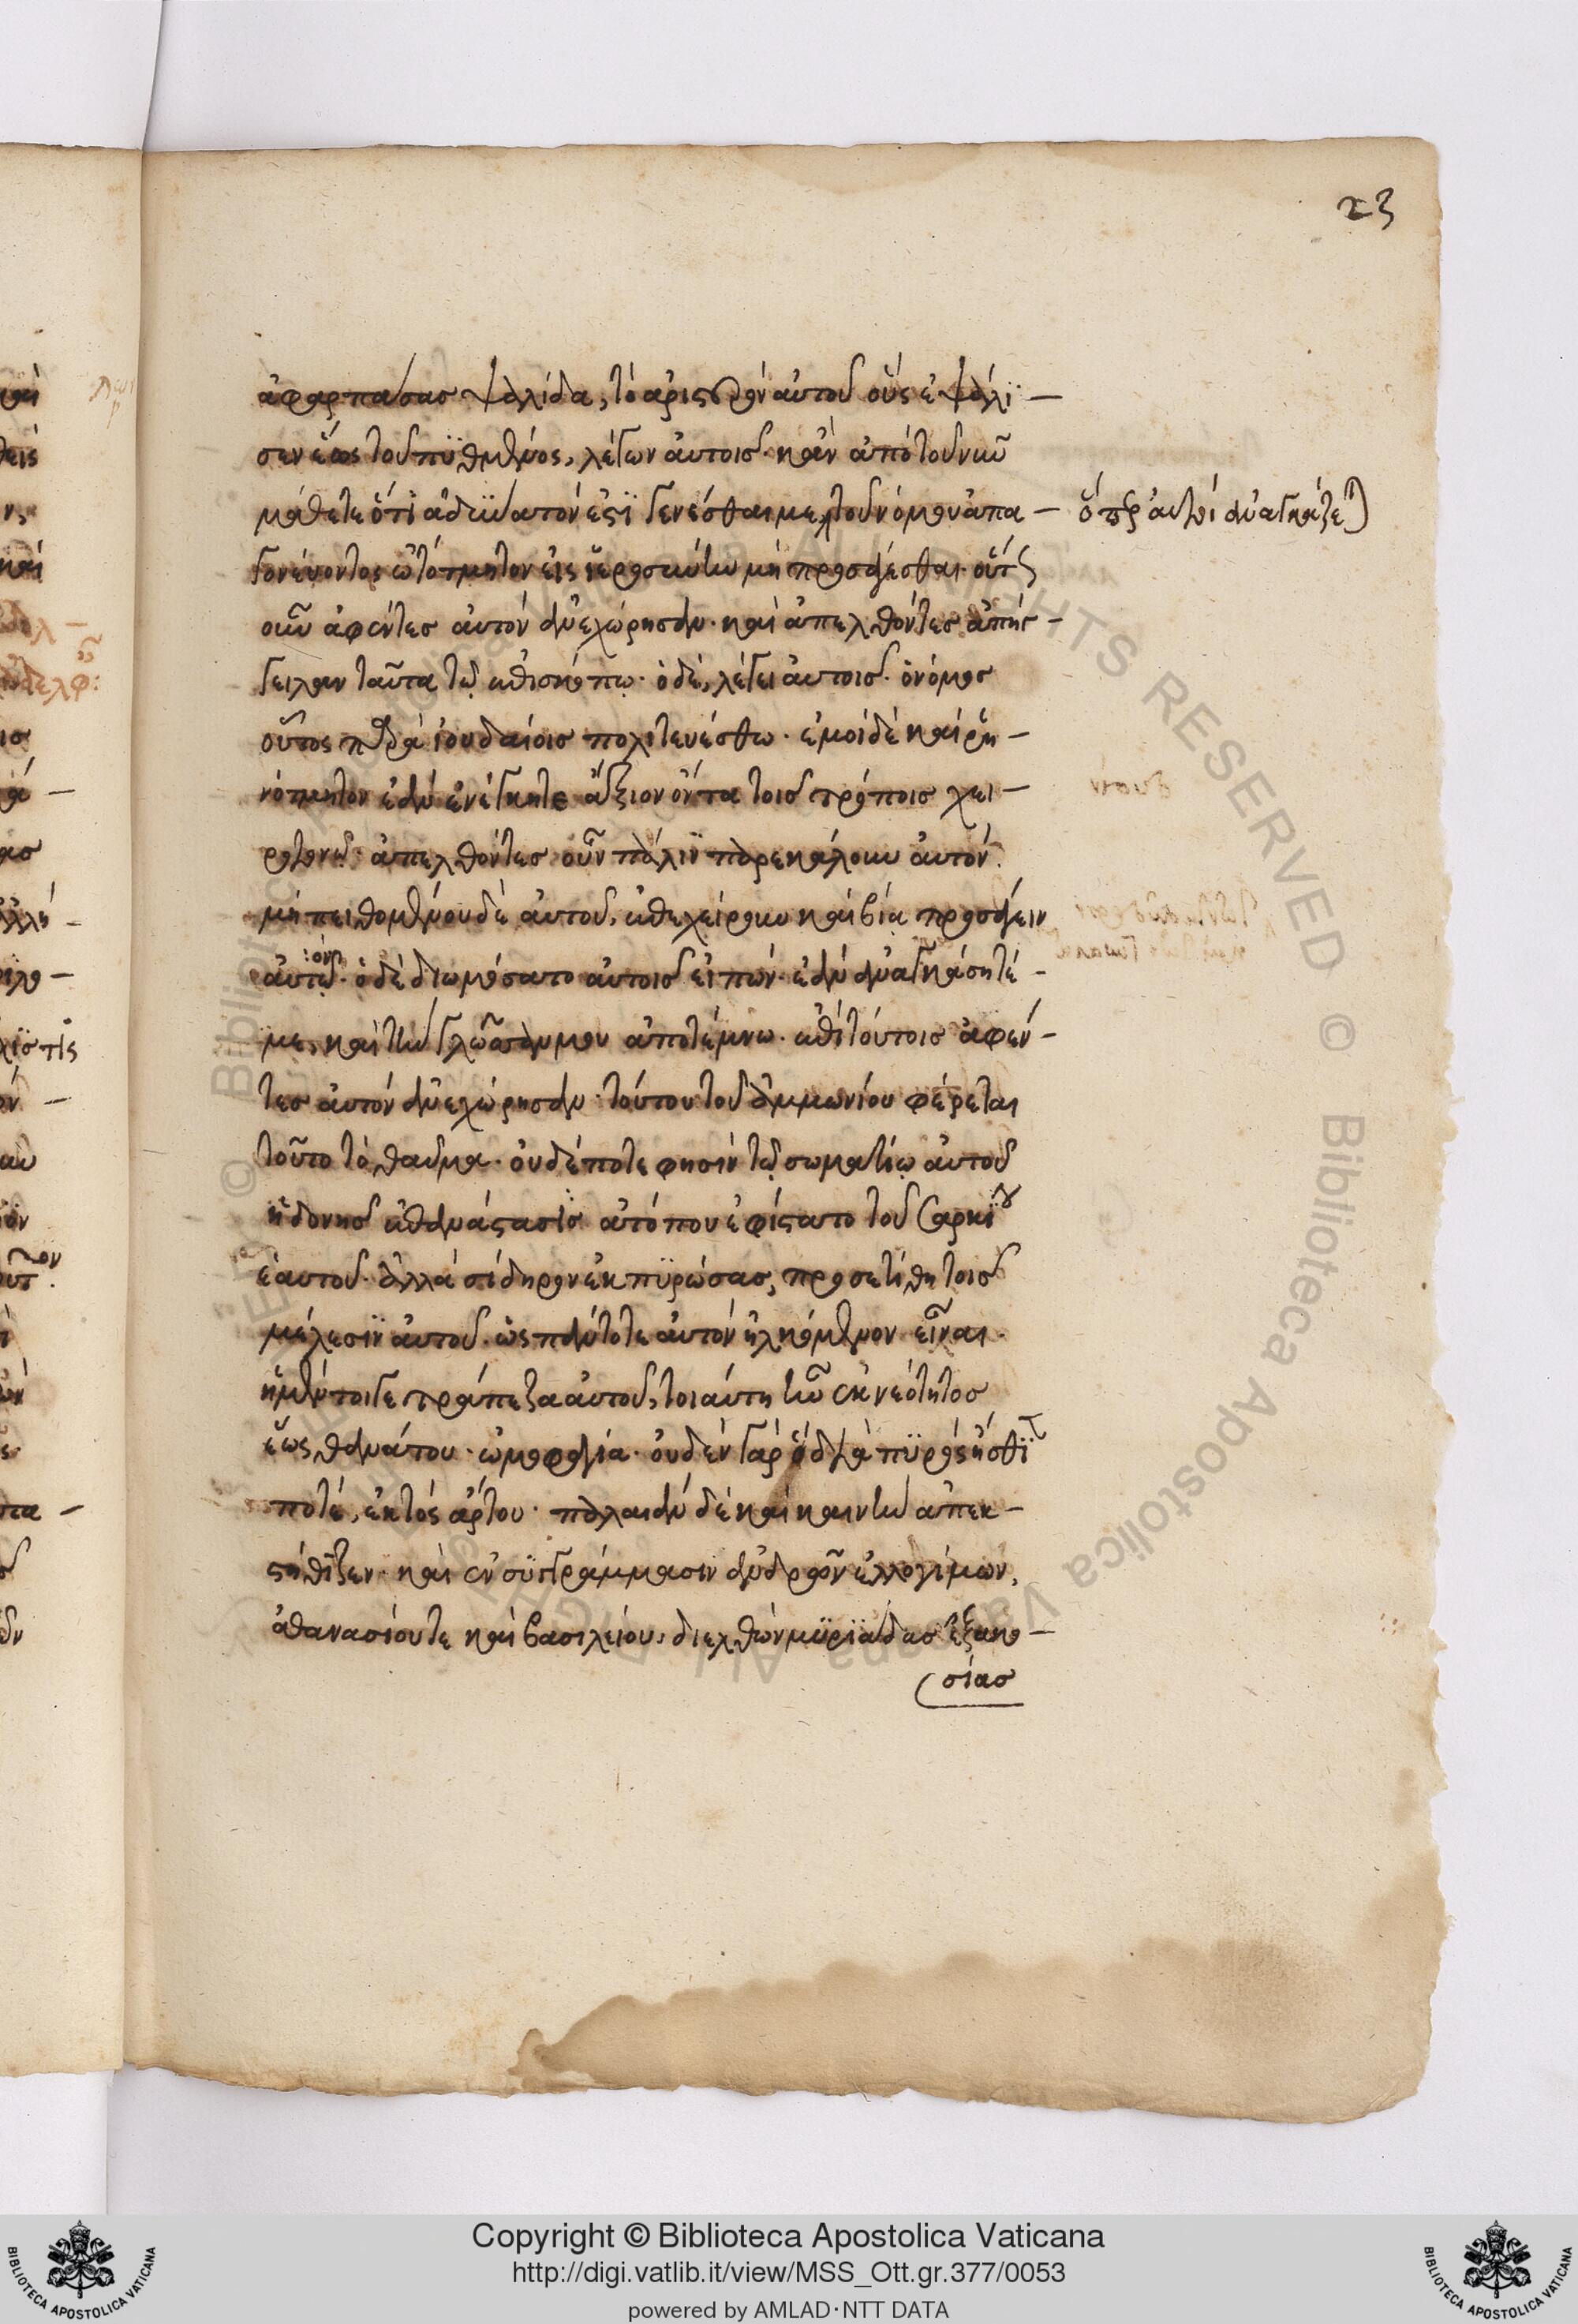 23
ἁφαρπάσας ψαλίδα, τὸ ἀριστερὸν αὐτοῦ οὖς ἐψάλι –
σεν ἕως τοῦ πυθμένος, λέγων αὐτοῖς· κἂν ἀπὸ τοῦ νῦν
μάθετε ὅτι ἀδύνατον ἐστὶ γενέσθαι με, τοῦ νόμου ἀπα –
ὅπερ αὐτοὶ ἀναγκάζετε
γορεύοντος ὠτότμητον εἰς ἱερωσύνην μὴ προσάγεσθαι· οὕτως
οὖν ἀφέντες αὐτὸν ἀνεχώρησαν· καὶ ἀπελθόντες ἀπήγ –
γειλαν ταῦτα τῷ ἐπισκόπῳ· ὁ δὲ, λέγει αὐτοῖς· ὁ νόμος
οὗτος παρὰ ἰουδαίοις πολιτευέσθω· ἐμοὶ δὲ καὶ ῥι –
νότμητον ἐὰν ἐνέγκητε ἄξιον ὄντα τοῖς τρόποις χει –
ροτονῶ· ἀπελθόντες οὖν πάλιν παρεκάλουν αὐτόν·
μὴ πειθομένου δὲ αὐτοῦ, ἐπεχείρουν καὶ βίᾳ προσάγειν
αὐτόν· ὁ δὲ διωμόσατο αὐτοῖς εἰπών· ἐὰν ἀναγκάσητέ –
με, καὶ τὴν γλῶσσαν μου ἀποτέμνω· ἐπὶ τούτοις ἀφέν –
τες αὐτὸν ἀνεχώρησαν· τούτου τοῦ ἀμμωνίου φέρεται
τοῦτο τὸ θαῦμα· οὐδέποτε φησὶν τῷ σωματίῳ αὐτοῦ
ἡδονῆς ἐπανάστασις ἀτόπου ἐφίστατο τοῦ σαρκίου
ἑαυτοῦ· ἀλλὰ σίδηρον ἐκπυρώσας, προσετίθη τοῖς
μέλεσιν αὐτοῦ· ὡς πάντοτε αὐτὸν ἡλκομένον εἶναι·
ἡ μέντοιγε τράπεζα αὐτοῦ, τοιαύτη ἦν ἐκ νεότητος
ἕως θανάτου· ὠμοφαγία· οὐδὲν γὰρ ὃ διὰ πυρὸς ἤσθιέ
ποτέ, ἐκτὸς ἄρτου· παλαιὰν δὲ καὶ καινὴν ἀπεκ –
στήθιζεν· καὶ ἐν συγγράμμασιν ἀνδρῶν ἐλλογίμων,
ἀθανασίου τε καὶ βασιλείου, διελθὼν μυριάδας ἑξακο –
σίας
Copyright © Biblioteca Apostolica Vaticana
http://digi.vatlib.it/view/MSS_Ott.gr.377/0053
powered by AMLAD·NTT DATA
BIBLIOTECA APOSTOLICA VATICANA
BIBLIOTECA APOSTOLICA VATICANA